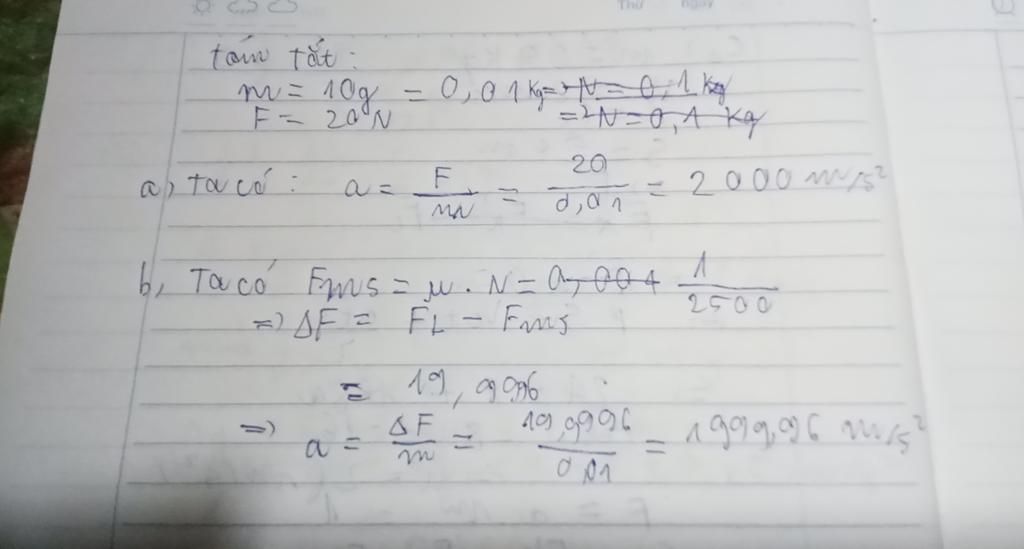 Thứ ngày
tóm tắt:
m = 10g = 0,01kg = N = 0,1 kg
F = 20N = 2N = 0,1 kg
a, Ta có: a = F/m = 20/0,01 = 2000 m/s²
b, Ta có Fms = μ.N = 0,004 1/2500
=> ΔF = FL - Fms
= 19,9996
=> a = ΔF/m = 19,9996/0,01 = 1999,96 m/s²